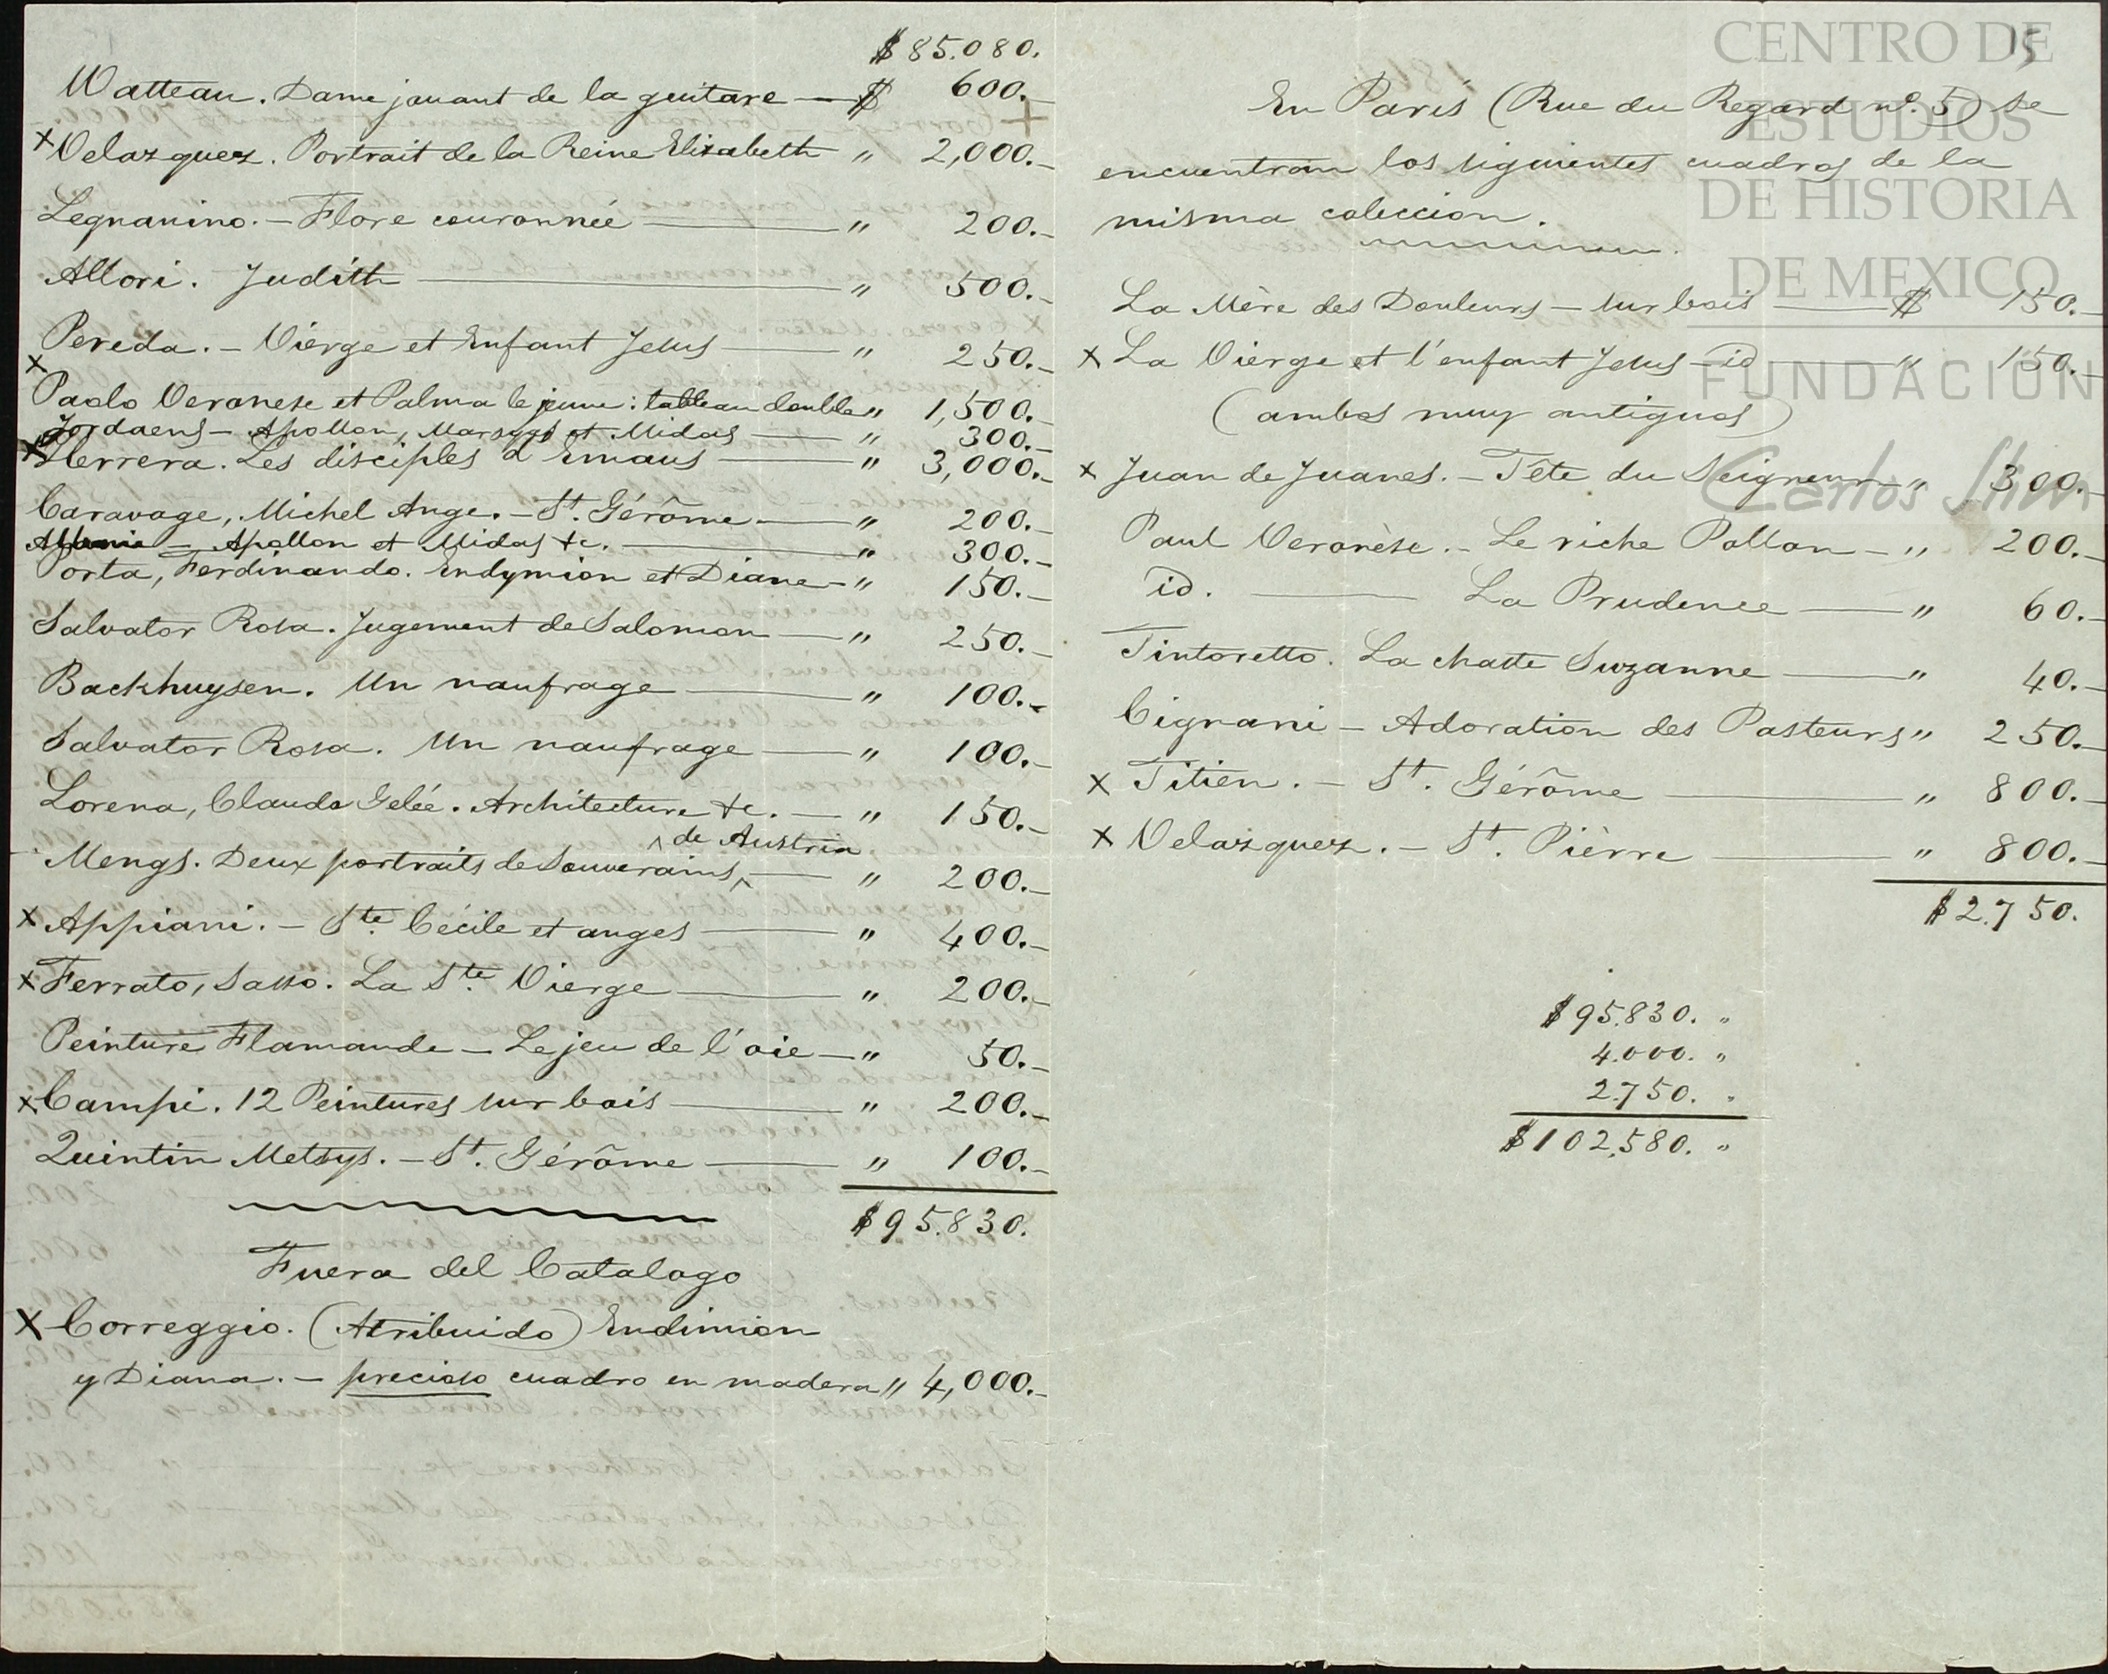 $85.080.
Watteau. Dame jouant de la guitare — $ 600.-
x Velazquez. Portrait de la Reine Elizabeth " 2,000.-
Legnanino. - Flore couronnée — " 200.-
Allori. Judith — " 500.-
Pereda. - Vierge et Enfant Jesus — " 250.-
x Paolo Veronese et Palma le jeune: tableau double " 1,500.-
Jordaens - Apollon, Marsyas et Midas — " 300.-
x Herrera. Les disciples d'Emaus — " 3,000.-
Caravage, Michel Ange. - St. Gérôme — " 200.-
Apollon et Midas &c. — " 300.-
Porta, Ferdinando. Endymion et Diane - " 150.-
Salvator Rosa. Jugement de Salomon — " 250.-
Backhuysen. Un naufrage — " 100.-
Salvator Rosa. Un naufrage — " 100.-
Lorena, Claudo Gelée. Architecture &c. — " 150.-
de Austria
Mengs. Deux portraits de Souverains, — " 200.-
x Appiani. - Ste. Cécile et anges — " 400.-
x Ferrato, Sasso. La Ste. Vierge — " 200.-
Peinture Flamande - Le jeu de l'oie - " 50.-
x Campi. 12 Peintures sur bois — " 200.-
Quintin Metsys. - St. Gérôme — " 100.-
$95.830.
Fuera del Catalogo
X Correggio. (Atribuido) Endimion
y Diana. - precioso cuadro en madera " 4,000.-
15
En Paris (Rue du Regard no. 5) se
encuentran los siguientes cuadros de la
misma coleccion.
La Mère des Douleurs - sur bois — $ 150.-
x La Vierge et l'enfant Jesus - id — " 150.-
(ambos muy antiguos)
x Juan de Juanes. - Tête du Seigneur - " 300.-
Paul Veronèse. - Le riche Pollon - " 200.-
id. — La Prudence — " 60.-
Tintoretto. La chaste Suzanne — " 40.-
Cignani - Adoration des Pasteurs " 250.-
x Titien. - St. Gérôme — " 800.-
x Velazquez. - St. Pièrre — " 800.-
$2.750.
$95.830. "
4.000. "
2.750. "
$102.580. "
CENTRO DE
ESTUDIOS
DE HISTORIA
DE MEXICO
FUNDACION
Carlos Slim